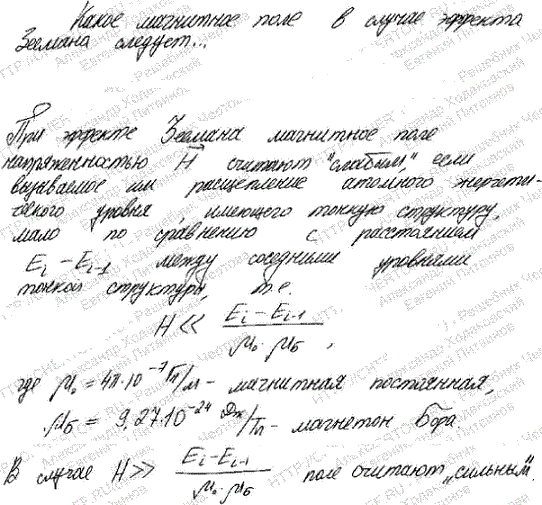 Какое магнитное поле в случае эффекта
Зеемана следует...
При эффекте Зеемана магнитное поле
напряженностью H⃗ считают "слабым", если
вызываемое им расщепление атомного энергети-
ческого уровня, имеющего тонкую структуру,
мало по сравнению с расстоянием
Ei − Ei-1 между соседними уровнями
тонкой структуры, т.е.
H << (Ei − Ei-1) / (μ₀ · μБ),
где μ₀ = 4π·10⁻⁷ Гн/м - магнитная постоянная,
μБ = 9,27·10⁻²⁴ Дж/Тл - магнетон Бора
В случае H >> (Ei − Ei-1) / (μ₀ · μБ) поле считают „сильным".